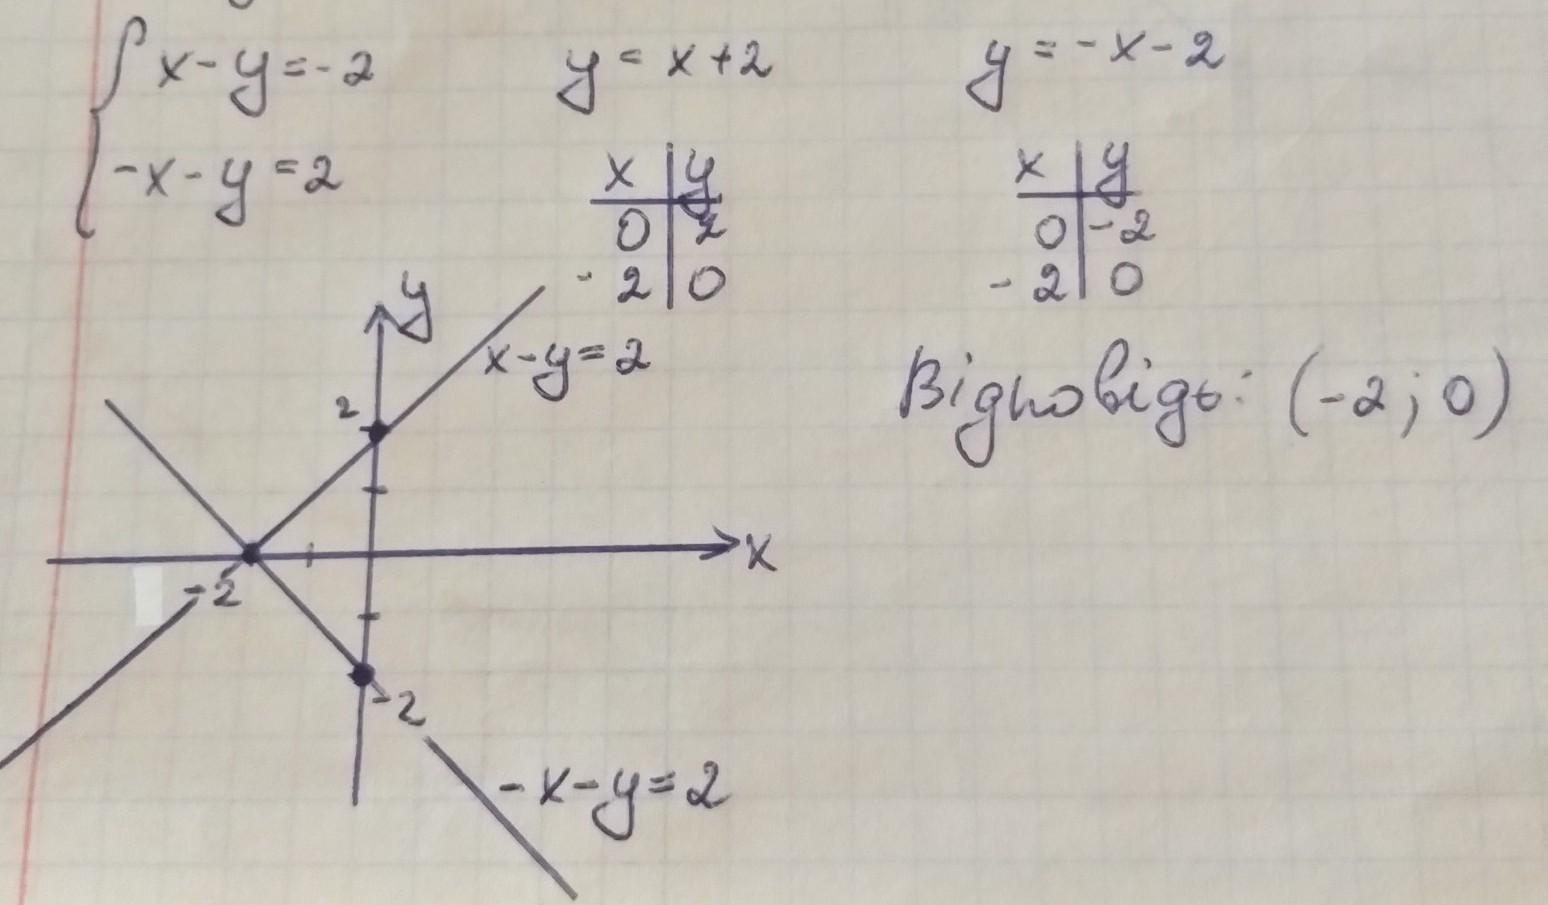 x-y=-2
-x-y=2
y = x+2
x y
0 2
-2 0
y = -x-2
x y
0 -2
-2 0
y
x-y=2
2
x
-2
-2
-x-y=2
Відповідь: (-2; 0)